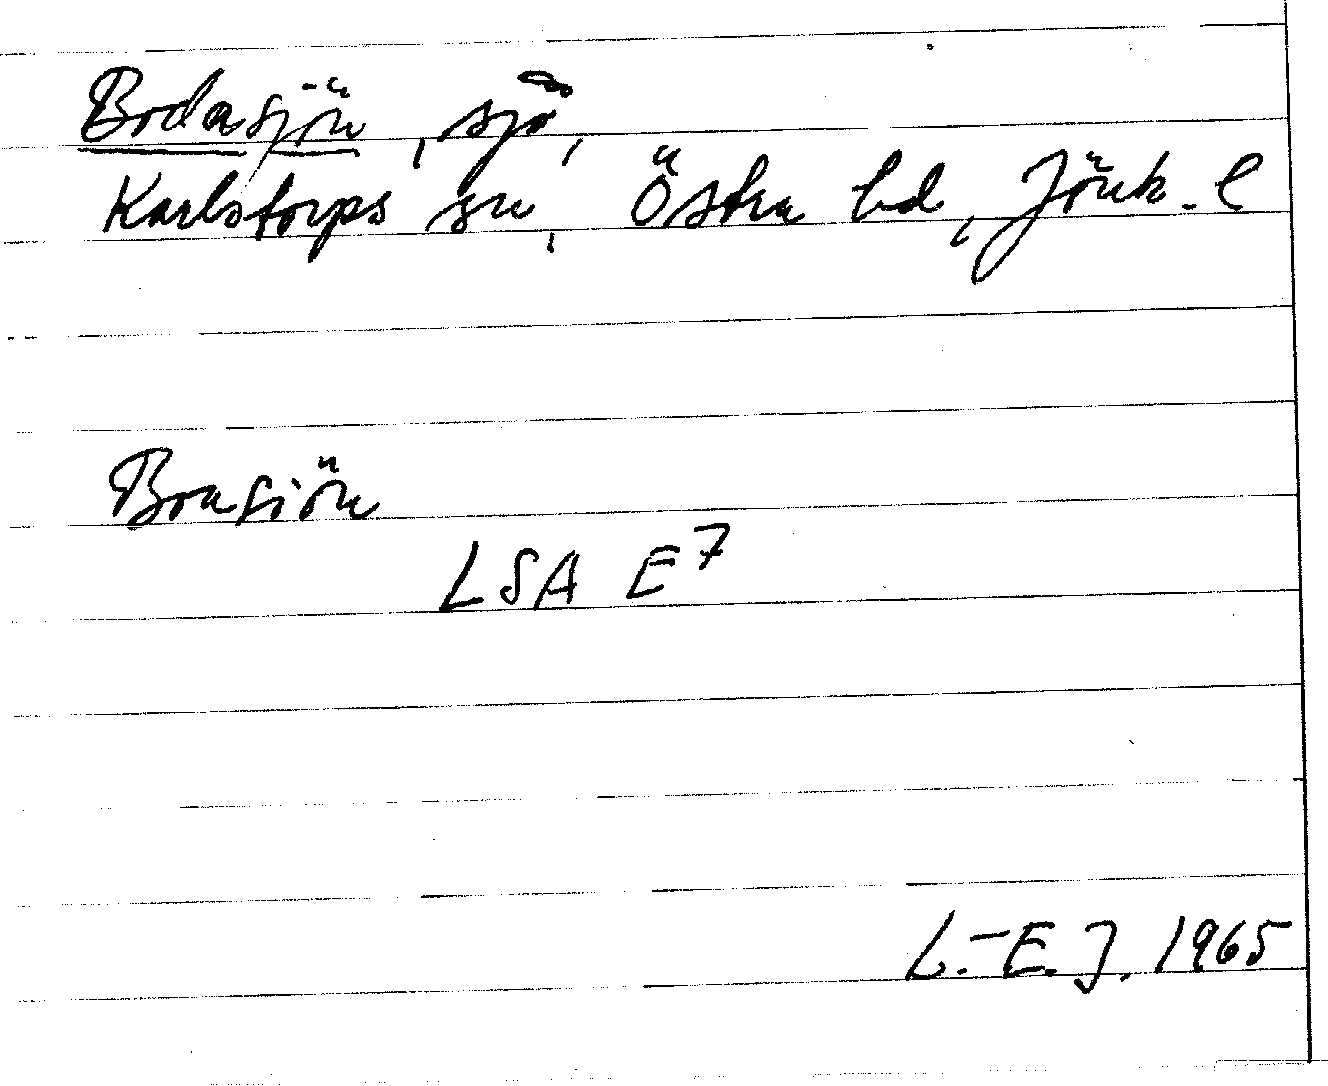 Bodasjön, sjö,
Karlstorps sn, Östra hd, Jönk. l
Brasjön
LSA E7
L.-E. J. 1965